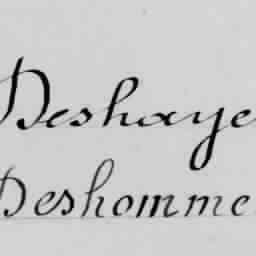 Deshaye
Deshomme